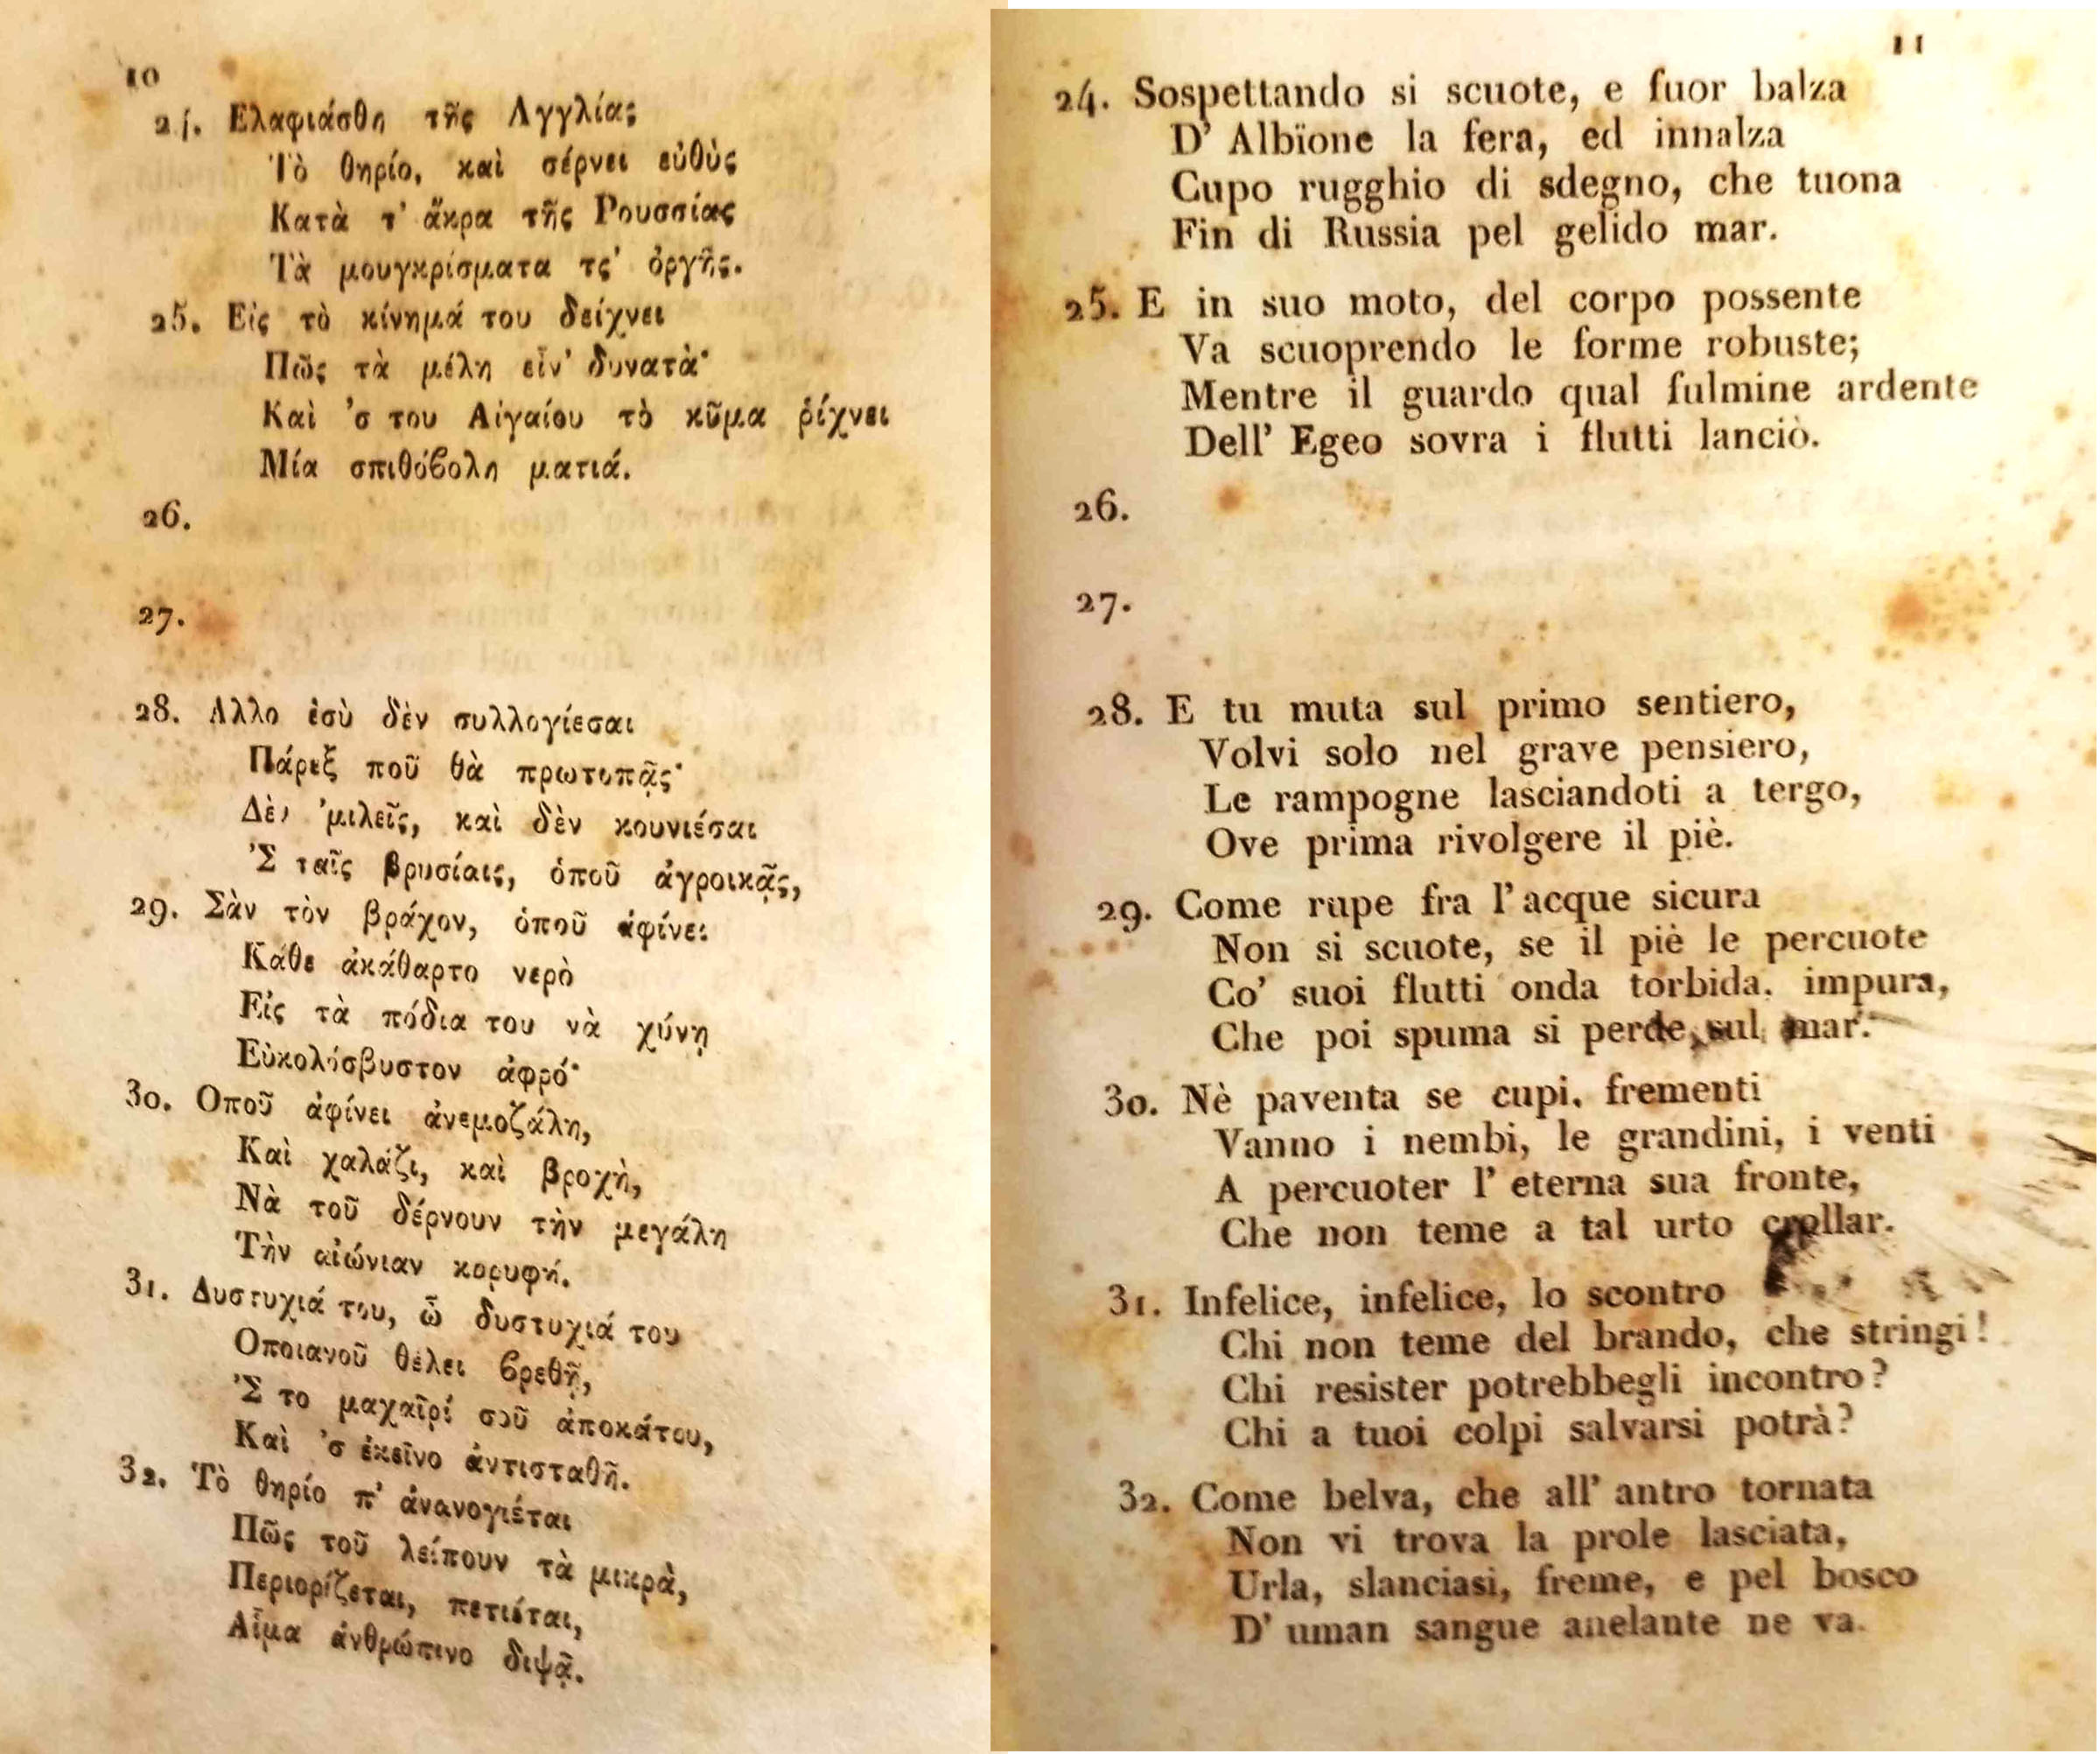 10
24. Ελαφιάσθη τῆς Αγγλίας
Τὸ θηρίο, καὶ σέρνει εὐθὺς
Κατὰ τ' ἄκρα τῆς Ρουσσίας
Τὰ μουγκρίσματα τς' ὀργῆς.
25. Εἰς τὸ κίνημά του δείχνει
Πῶς τὰ μέλη εἶν' δυνατὰ·
Καὶ 'σ του Αἰγαίου τὸ κῦμα ῥίχνει
Μία σπιθόβολη ματιά.
26.
27.
28. Αλλο ἐσὺ δὲν συλλογίεσαι
Πάρεξ ποῦ θὰ πρωτοπᾷς·
Δὲν 'μιλεῖς, καὶ δὲν κουνιέσαι
'Σ ταῖς βρυσίαις, ὁποῦ ἀγροικᾷς,
29. Σὰν τὸν βράχον, ὁποῦ ἀφίνει
Κάθε ἀκάθαρτο νερὸ
Εἰς τὰ πόδια του νὰ χύνῃ
Εὐκολόσβυστον ἀφρό·
30. Οποῦ ἀφίνει ἀνεμοζάλη,
Καὶ χαλάζι, καὶ βροχὴ,
Νὰ τοῦ δέρνουν τὴν μεγάλη
Τὴν αἰώνιαν κορυφή.
31. Δυστυχιά του, ὦ δυστυχιά του
Οποιανοῦ θέλει βρεθῇ,
'Σ το μαχαῖρί σοῦ ἀποκάτου,
Καὶ 'σ ἐκεῖνο ἀντισταθῇ.
32. Τὸ θηρίο π' ἀνανογιέται
Πῶς τοῦ λείπουν τὰ μικρὰ,
Περιορίζεται, πετιέται,
Αἷμα ἀνθρώπινο διψᾷ.
11
24. Sospettando si scuote, e fuor balza
D' Albïone la fera, ed innalza
Cupo rugghio di sdegno, che tuona
Fin di Russia pel gelido mar.
25. E in suo moto, del corpo possente
Va scuoprendo le forme robuste;
Mentre il guardo qual fulmine ardente
Dell' Egeo sovra i flutti lanciò.
26.
27.
28. E tu muta sul primo sentiero,
Volvi solo nel grave pensiero,
Le rampogne lasciandoti a tergo,
Ove prima rivolgere il piè.
29. Come rupe fra l'acque sicura
Non si scuote, se il piè le percuote
Co' suoi flutti onda torbida, impura,
Che poi spuma si perde sul mar.
30. Nè paventa se cupi, frementi
Vanno i nembi, le grandini, i venti
A percuoter l' eterna sua fronte,
Che non teme a tal urto crollar.
31. Infelice, infelice, lo scontro
Chi non teme del brando, che stringi!
Chi resister potrebbegli incontro?
Chi a tuoi colpi salvarsi potrà?
32. Come belva, che all' antro tornata
Non vi trova la prole lasciata,
Urla, slanciasi, freme, e pel bosco
D' uman sangue anelante ne va.